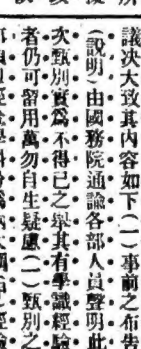 議決大致其內容如下（一）事前之布告
（說明）由國務院通諭各部人員聲明此
次甄別實爲不得已之舉其有學識經驗
者仍可留用萬勿自生疑慮（一）甄別之